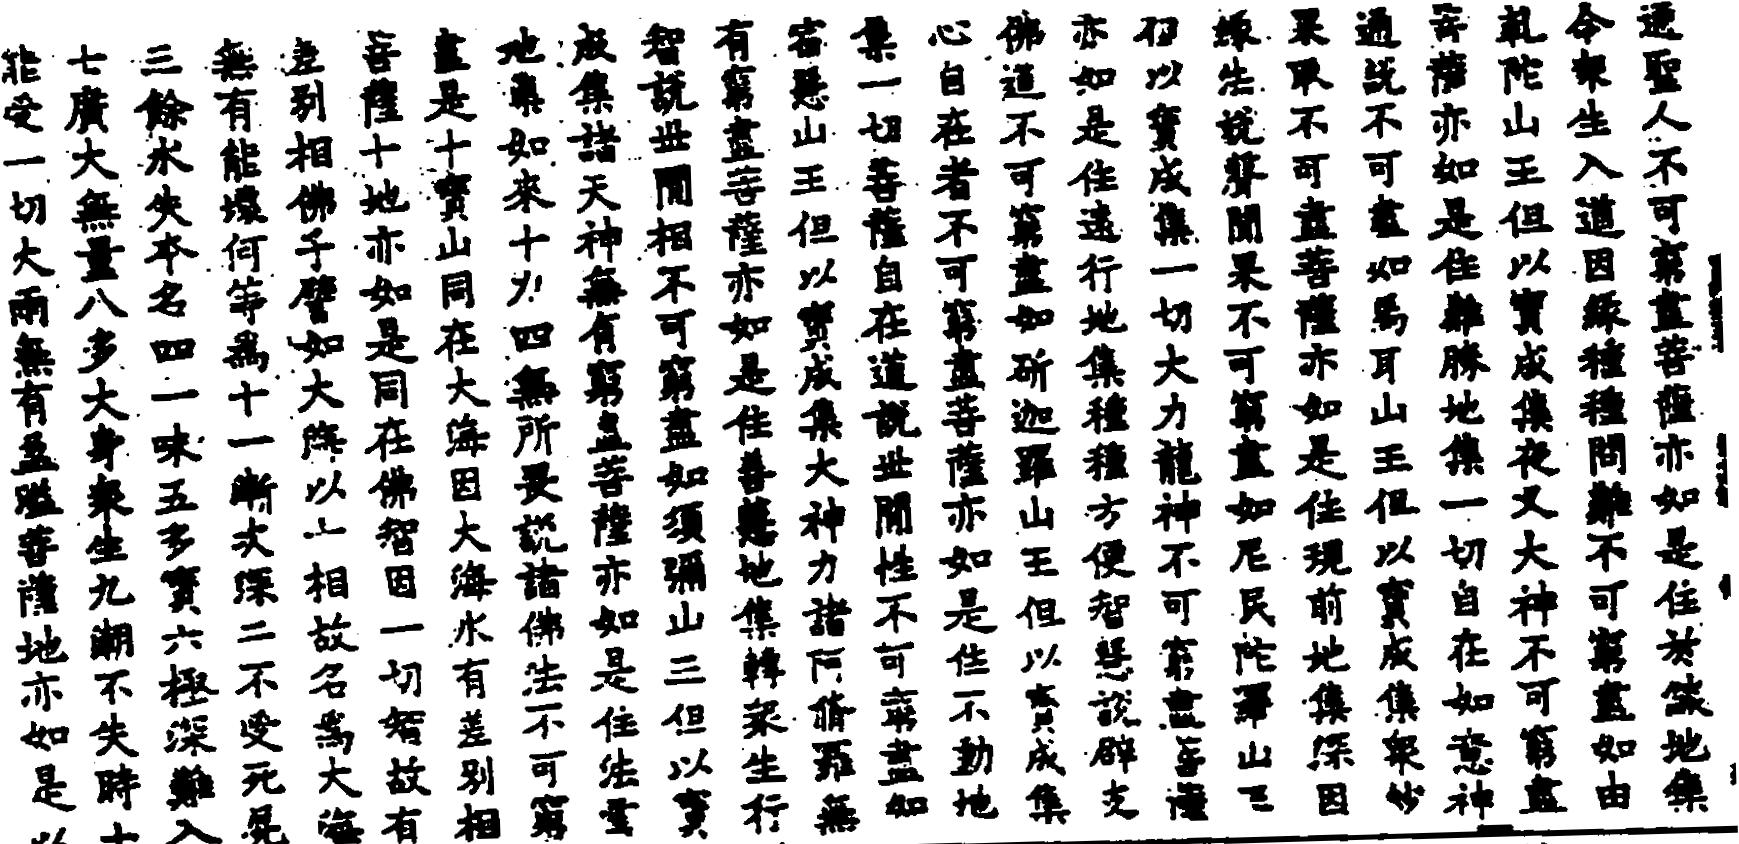 通聖人不可窮盡菩薩亦如是住於燄地集
令眾生入道因緣種種問難不可窮盡如由
乹陀山王但以寶成集夜叉大神不可窮盡
菩薩亦如是住難勝地集一切自在如意神
通說不可盡如馬耳山王但以寶成集眾妙
果取不可盡菩薩亦如是住現前地集深因
緣法說聲聞果不可窮盡如尼民陀羅山王
但以寶成集一切大力龍神不可窮盡菩薩
亦如是住遠行地集種種方便智慧說辟支
佛道不可窮盡如斫迦羅山王但以寶成集
心自在者不可窮盡菩薩亦如是住不動地
集一切菩薩自在道說世間性不可窮盡如
宿慧山王但以寶成集大神力諸阿脩羅無
有窮盡菩薩亦如是住善慧地集轉眾生行
智說世間相不可窮盡如須彌山王但以寶
成集諸天神無有窮盡菩薩亦如是住法雲
地集如來十力四無所畏說諸佛法不可窮
盡是十寶山同在大海因大海水有差別相
菩薩十地亦如是同在佛智因一切智故有
差別相佛子譬如大海以十相故名為大海
無有能壞何等為十一漸次深二不受死屍
三餘水失本名四一味五多寶六極深難入
七廣大無量八多大身眾生九潮不失時十
能受一切大雨無有盈溢菩薩地亦如是以